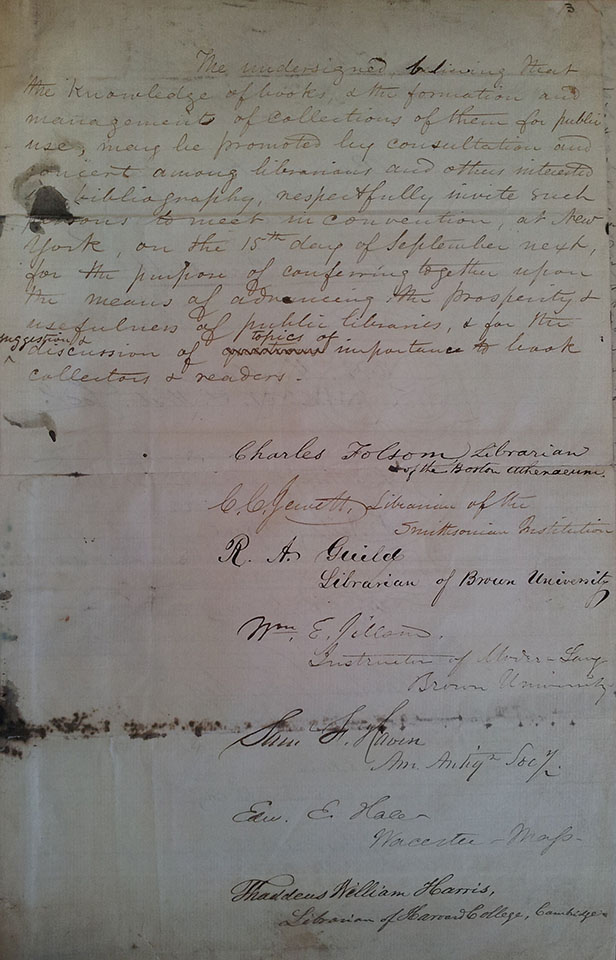 3
The undersigned, believing that
the knowledge of books, & the formation and
management of collections of them for public
use, may be promoted by consultation and
concert among librarians and others interested
bibliography, respectfully invite such
persons to meet in convention, at New
York, on the 15th day of September next,
for the purpose of conferring together upon
the means of advancing the prosperity &
usefulness of public libraries, & for the
suggestion & discussion of topics of importance to book
collectors & readers.
Charles Folsom, Librarian
of the Boston Athenaeum.
C. C. Jewett, Librarian of the
Smithsonian Institution
R. A. Guild
Librarian of Brown University
Wm. E. Jillson.
Instructor of Moder- Lang
Brown University
Sam F. Haven
Am. Antiqn Socy.
Edw. E. Hale
Worcester - Mass-
Thaddeus William Harris,
Librarian of Harvard College, Cambridge.